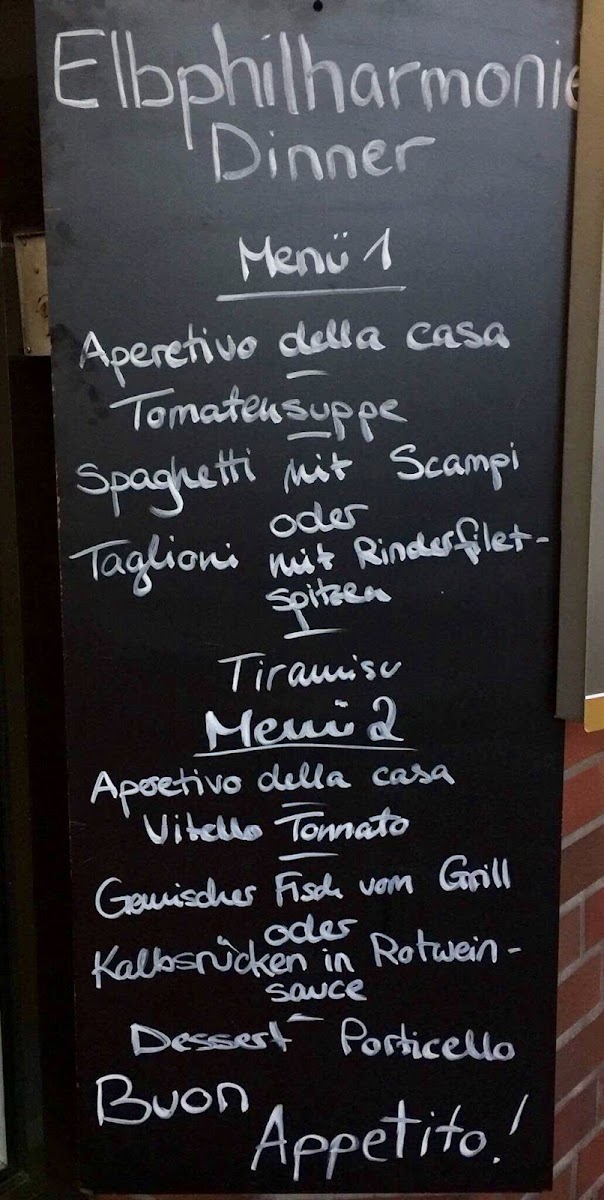 Elbphilharmonie
Dinner
Menü 1
Aperetivo della casa
Tomatensuppe
Spaghetti mit Scampi
oder
Taglioni mit Rinderfilet-
spitzen
Tiramisu
Menü 2
Aperetivo della casa
Vitello Tonnato
Gemischer Fisch vom Grill
oder
Kalbsrücken in Rotwein-
sauce
Dessert Porticello
Buon
Appetito!